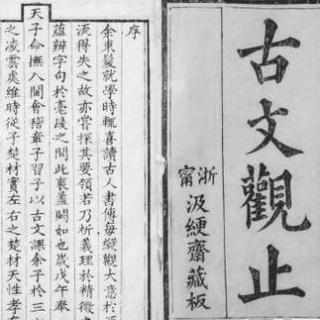 古文觀止
浙甯
汲綆齋藏板
序
余束髮就學時輒喜讀古人書傳每縱觀大意於
流得失之故亦嘗探其要領若乃析義理於精微
蘊辨字句於毫髮之間此衷蓋闕如也歲戊午奉
天子命撫八閩會稽章子習子以古文課余子於三
之凌雲處維時從子楚材實左右之楚材天性孝友